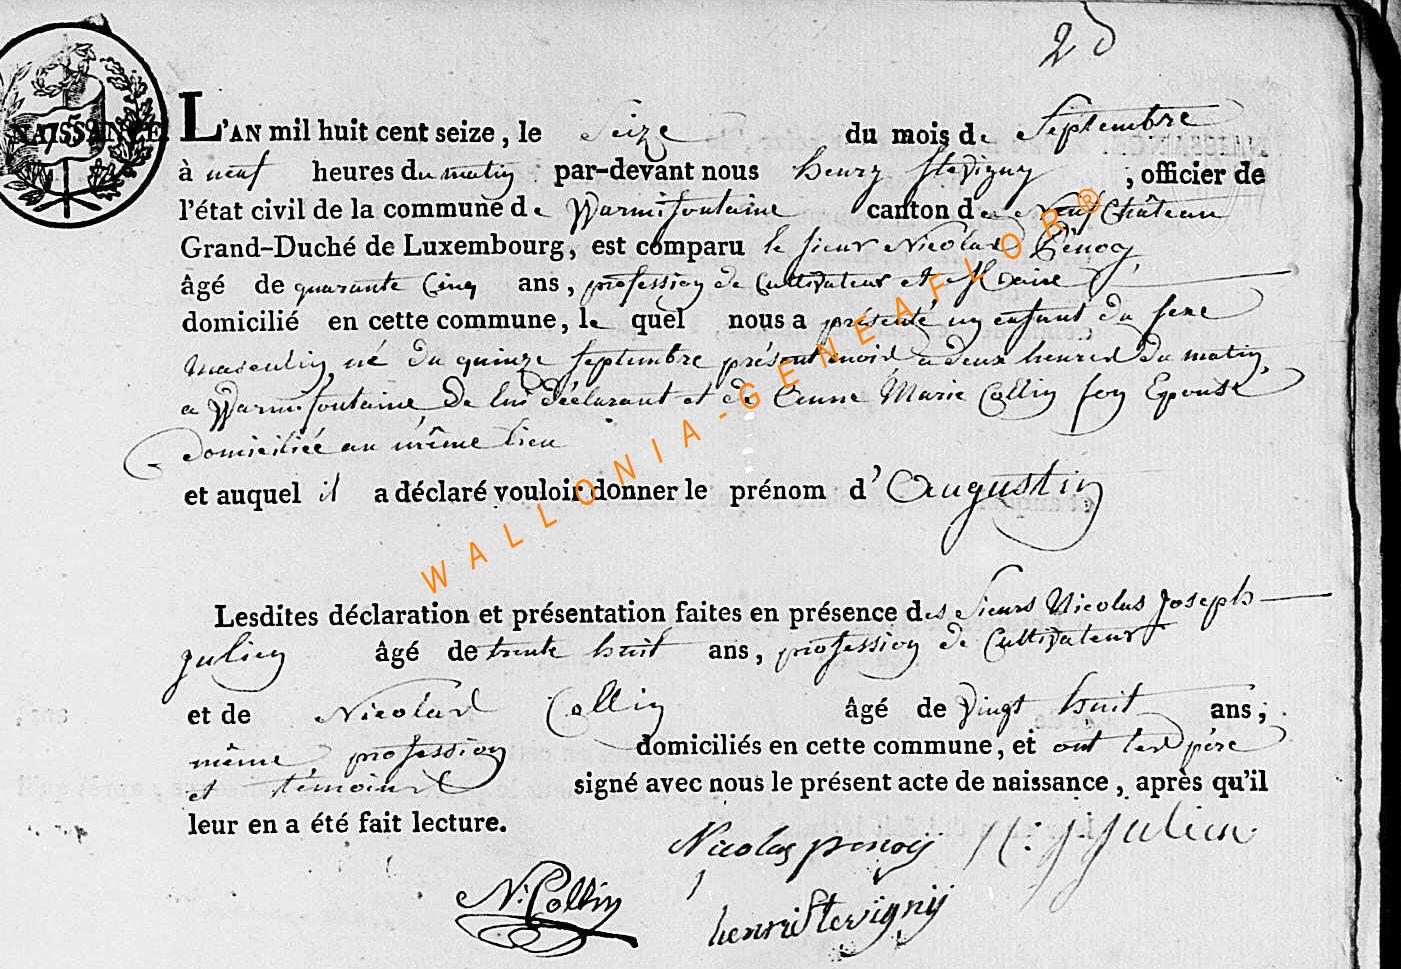 25
NAISSANCE
L'AN mil huit cent seize, le Seize du mois de Septembre
à neuf heures du matin par-devant nous henry Stevigny, officier de
l'état civil de la commune de Warmifontaine canton de Neuf Château
Grand-Duché de Luxembourg, est comparu le sieur Nicolas Penoy
âgé de quarante Cinq ans, profession de Cultivateur et
domicilié en cette commune, le quel nous a présenté un enfant du sexe
masculin, né du quinze Septembre présent mois a deux heures du matin,
a Warmifontaine De lui déclarant et de Anne Marie Collin son Epouse
domiciliée au même lieu
et auquel il a déclaré vouloir donner le prénom d'Augustin
WALLONIA-GENEAFLOR®
Lesdites déclaration et présentation faites en présence des Sieurs Nicolas Joseph
Julien âgé de trente huit ans, profession de Cultivateur
et de Nicolas Collin âgé de vingt huit ans;
même profession domiciliés en cette commune, et ont les père
et témoins signé avec nous le présent acte de naissance, après qu'il
leur en a été fait lecture.
Nicolas penoÿ N: J: Julien
N: Collin
henri Stevignÿ